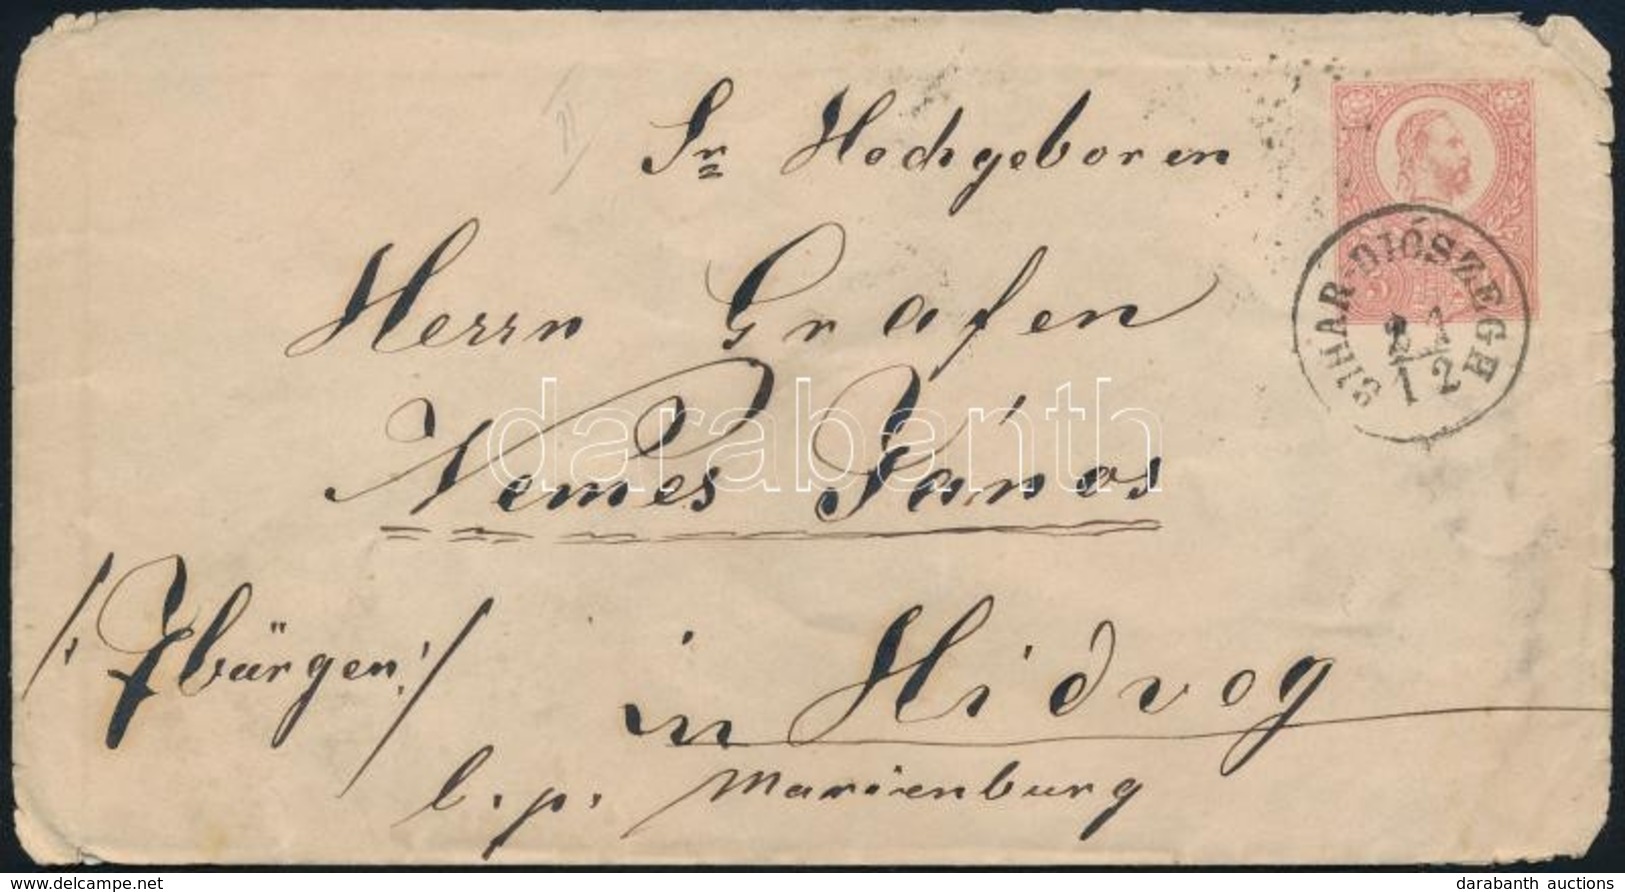 Sr Hochgeboren
Herrn Grafen
Nemes János
/: 7bürgen :/
in Hidvég
l. p. Marienburg
BIHAR-DIÓSZEGH
12
5 KR
darabanth
delcampe.net
darabanth auctions